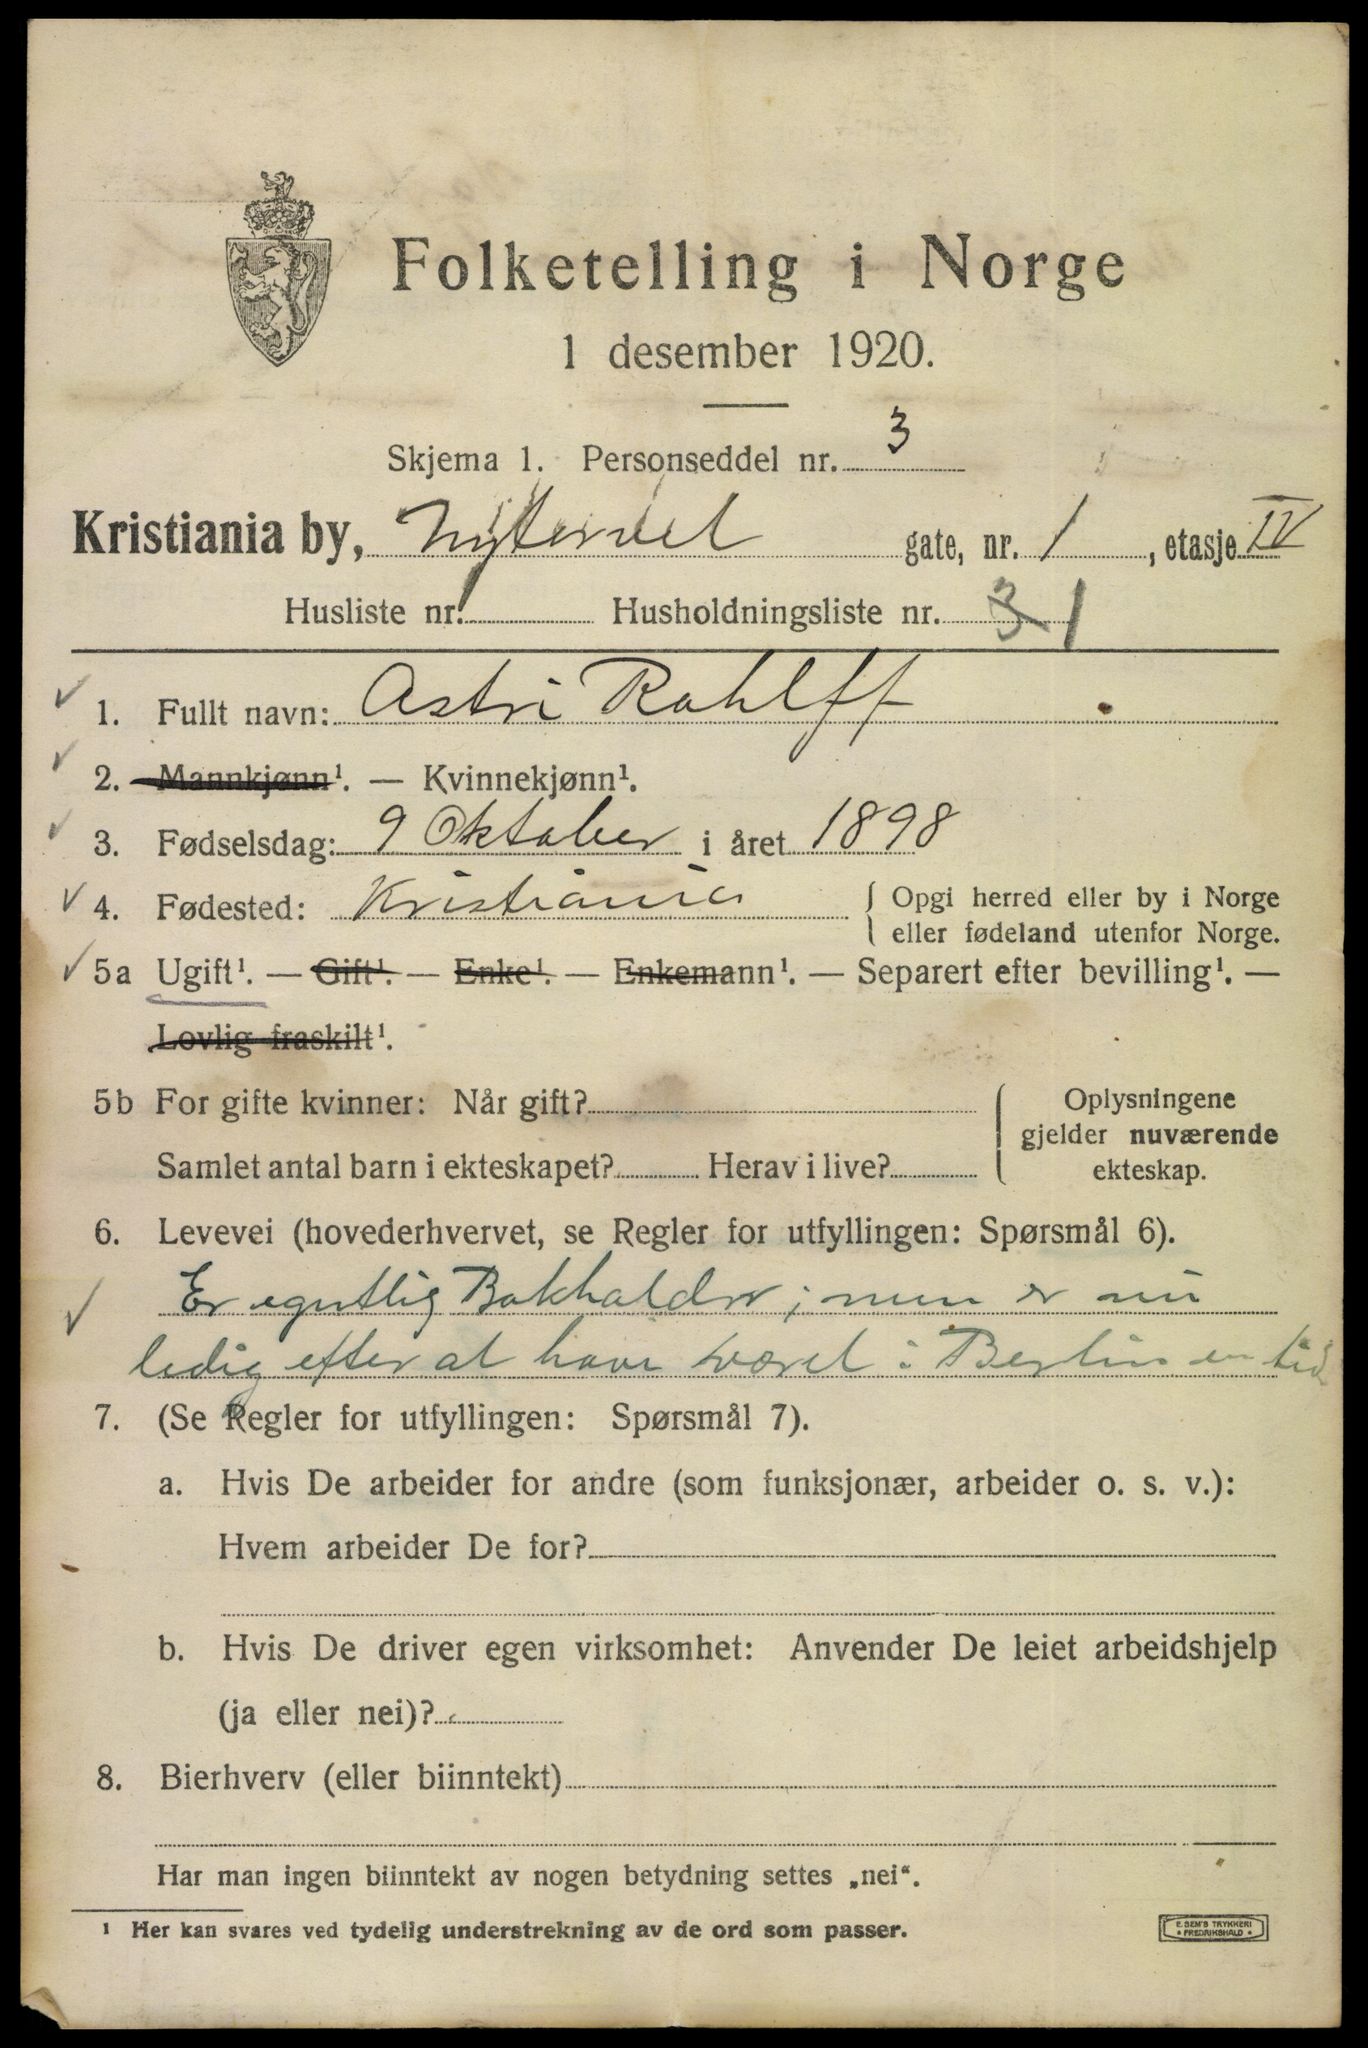 Folketelling i Norge
1 desember 1920.
Skjema 1. Personseddel nr. 3
Kristiania by, Nytorvet gate, nr. 1, etasje IV
Husliste nr. Husholdningsliste nr. 3 1
1. Fullt navn: Astri Rohlff
2. Mannkjønn¹. — Kvinnekjønn¹.
3. Fødselsdag: 9 Oktober i året 1898
4. Fødested: Kristiania { Opgi herred eller by i Norge
eller fødeland utenfor Norge.
5a Ugift¹. — Gift¹. — Enke¹. — Enkemann¹. — Separert efter bevilling¹. —
Lovlig fraskilt¹.
5b For gifte kvinner: Når gift?
Samlet antal barn i ekteskapet? Herav i live?
Oplysningene
gjelder nuværende
ekteskap.
6. Levevei (hovederhvervet, se Regler for utfyllingen: Spørsmål 6).
Er egentlig Bokholder, men er nu
ledig efter at have været i Berlin en tid
7. (Se Regler for utfyllingen: Spørsmål 7).
a. Hvis De arbeider for andre (som funksjonær, arbeider o. s. v.):
Hvem arbeider De for?
b. Hvis De driver egen virksomhet: Anvender De leiet arbeidshjelp
(ja eller nei)?
8. Bierhverv (eller biinntekt)
Har man ingen biinntekt av nogen betydning settes „nei“.
¹ Her kan svares ved tydelig understrekning av de ord som passer.
E. SEM'S TRYKKERI
• FREDRIKSHALD •